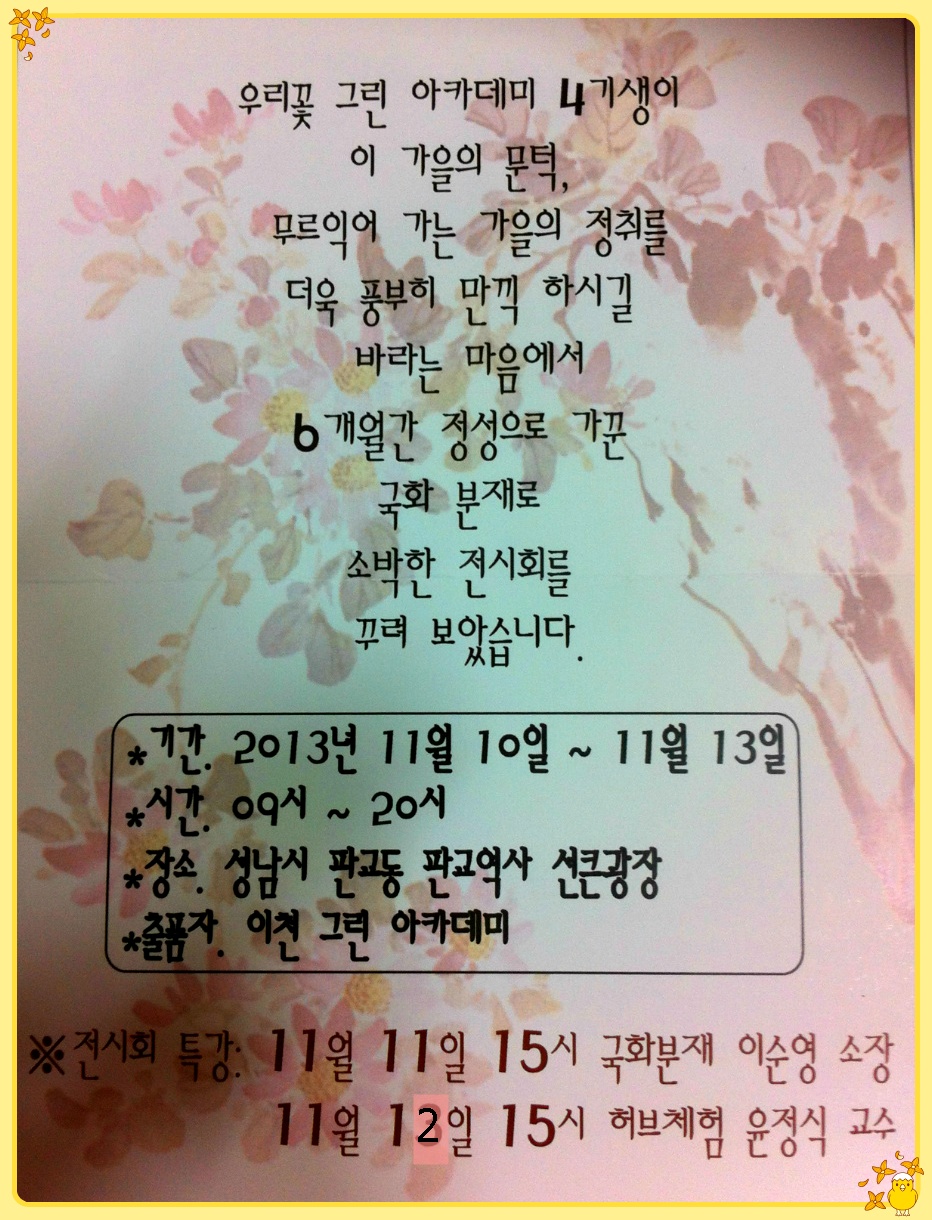 우리꽃 그린 아카데미 4기생이
이 가을의 문턱,
무르익어 가는 가을의 정취를
더욱 풍부히 만끽 하시길
바라는 마음에서
6개월간 정성으로 가꾼
국화 분재로
소박한 전시회를
꾸려 보았습니다.
*기간. 2013년 11월 10일 ~ 11월 13일
*시간. 09시 ~ 20시
*장소. 성남시 판교동 판교역사 선큰광장
*출품자. 이천 그린 아카데미
※전시회 특강: 11월 11일 15시 국화분재 이순영 소장
11월 12일 15시 허브체험 윤정식 교수